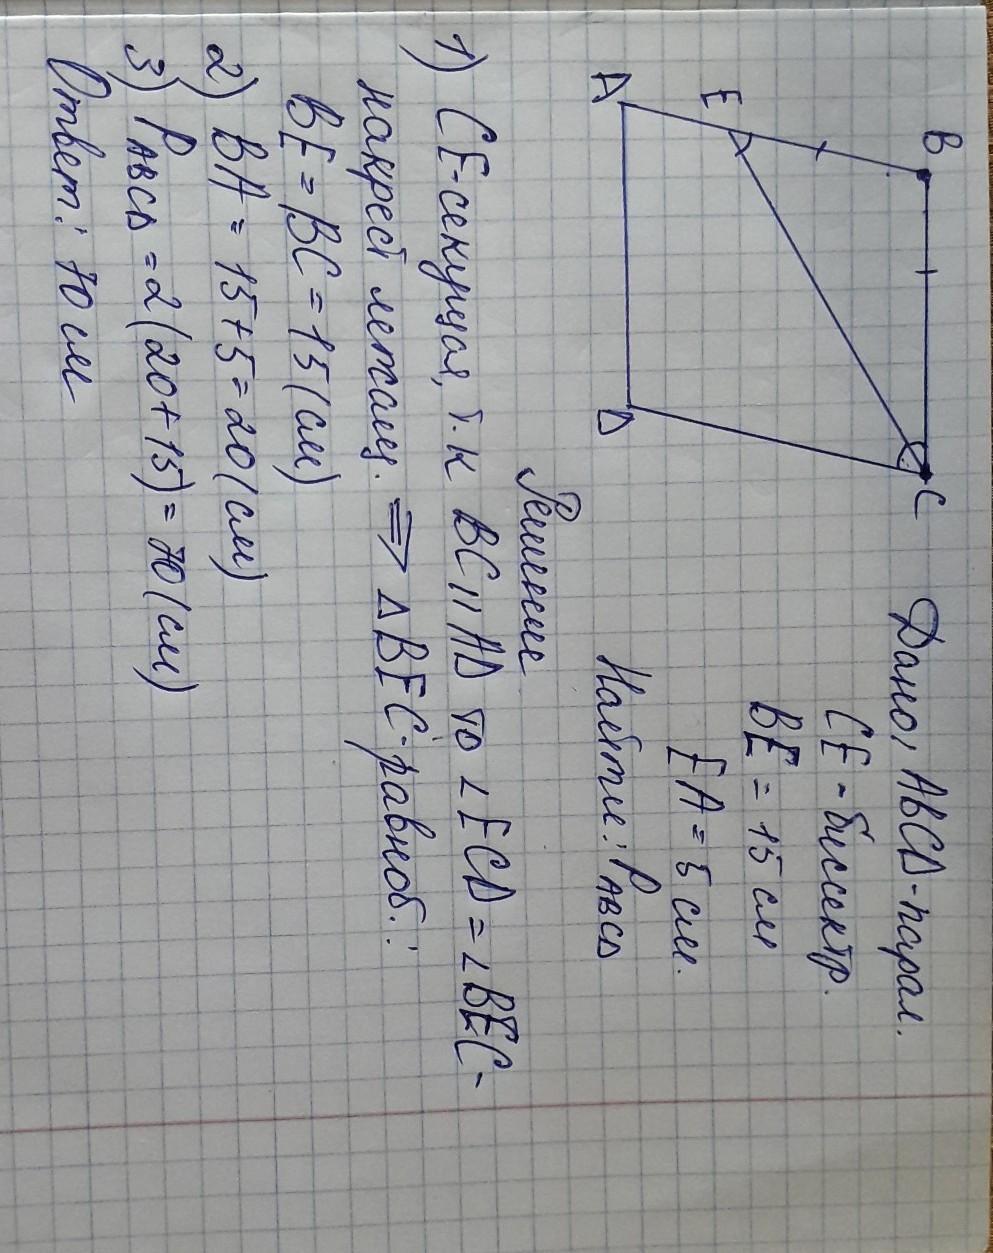 B
C
E
A
D
Дано, ABCD-парал.
CE-биссектр.
BE = 15 см
EA = 5 см.
Найти: P ABCD
Решение
1) CE-секущая, т.к BC || AD то ∠ECD = ∠BEC-
накрест лежащ. ⇒ △BEC-равноб.:
BE = BC = 15 (см)
2) BA = 15+5 = 20 (см)
3) P ABCD = 2(20+15) = 70 (см)
Ответ: 70 см